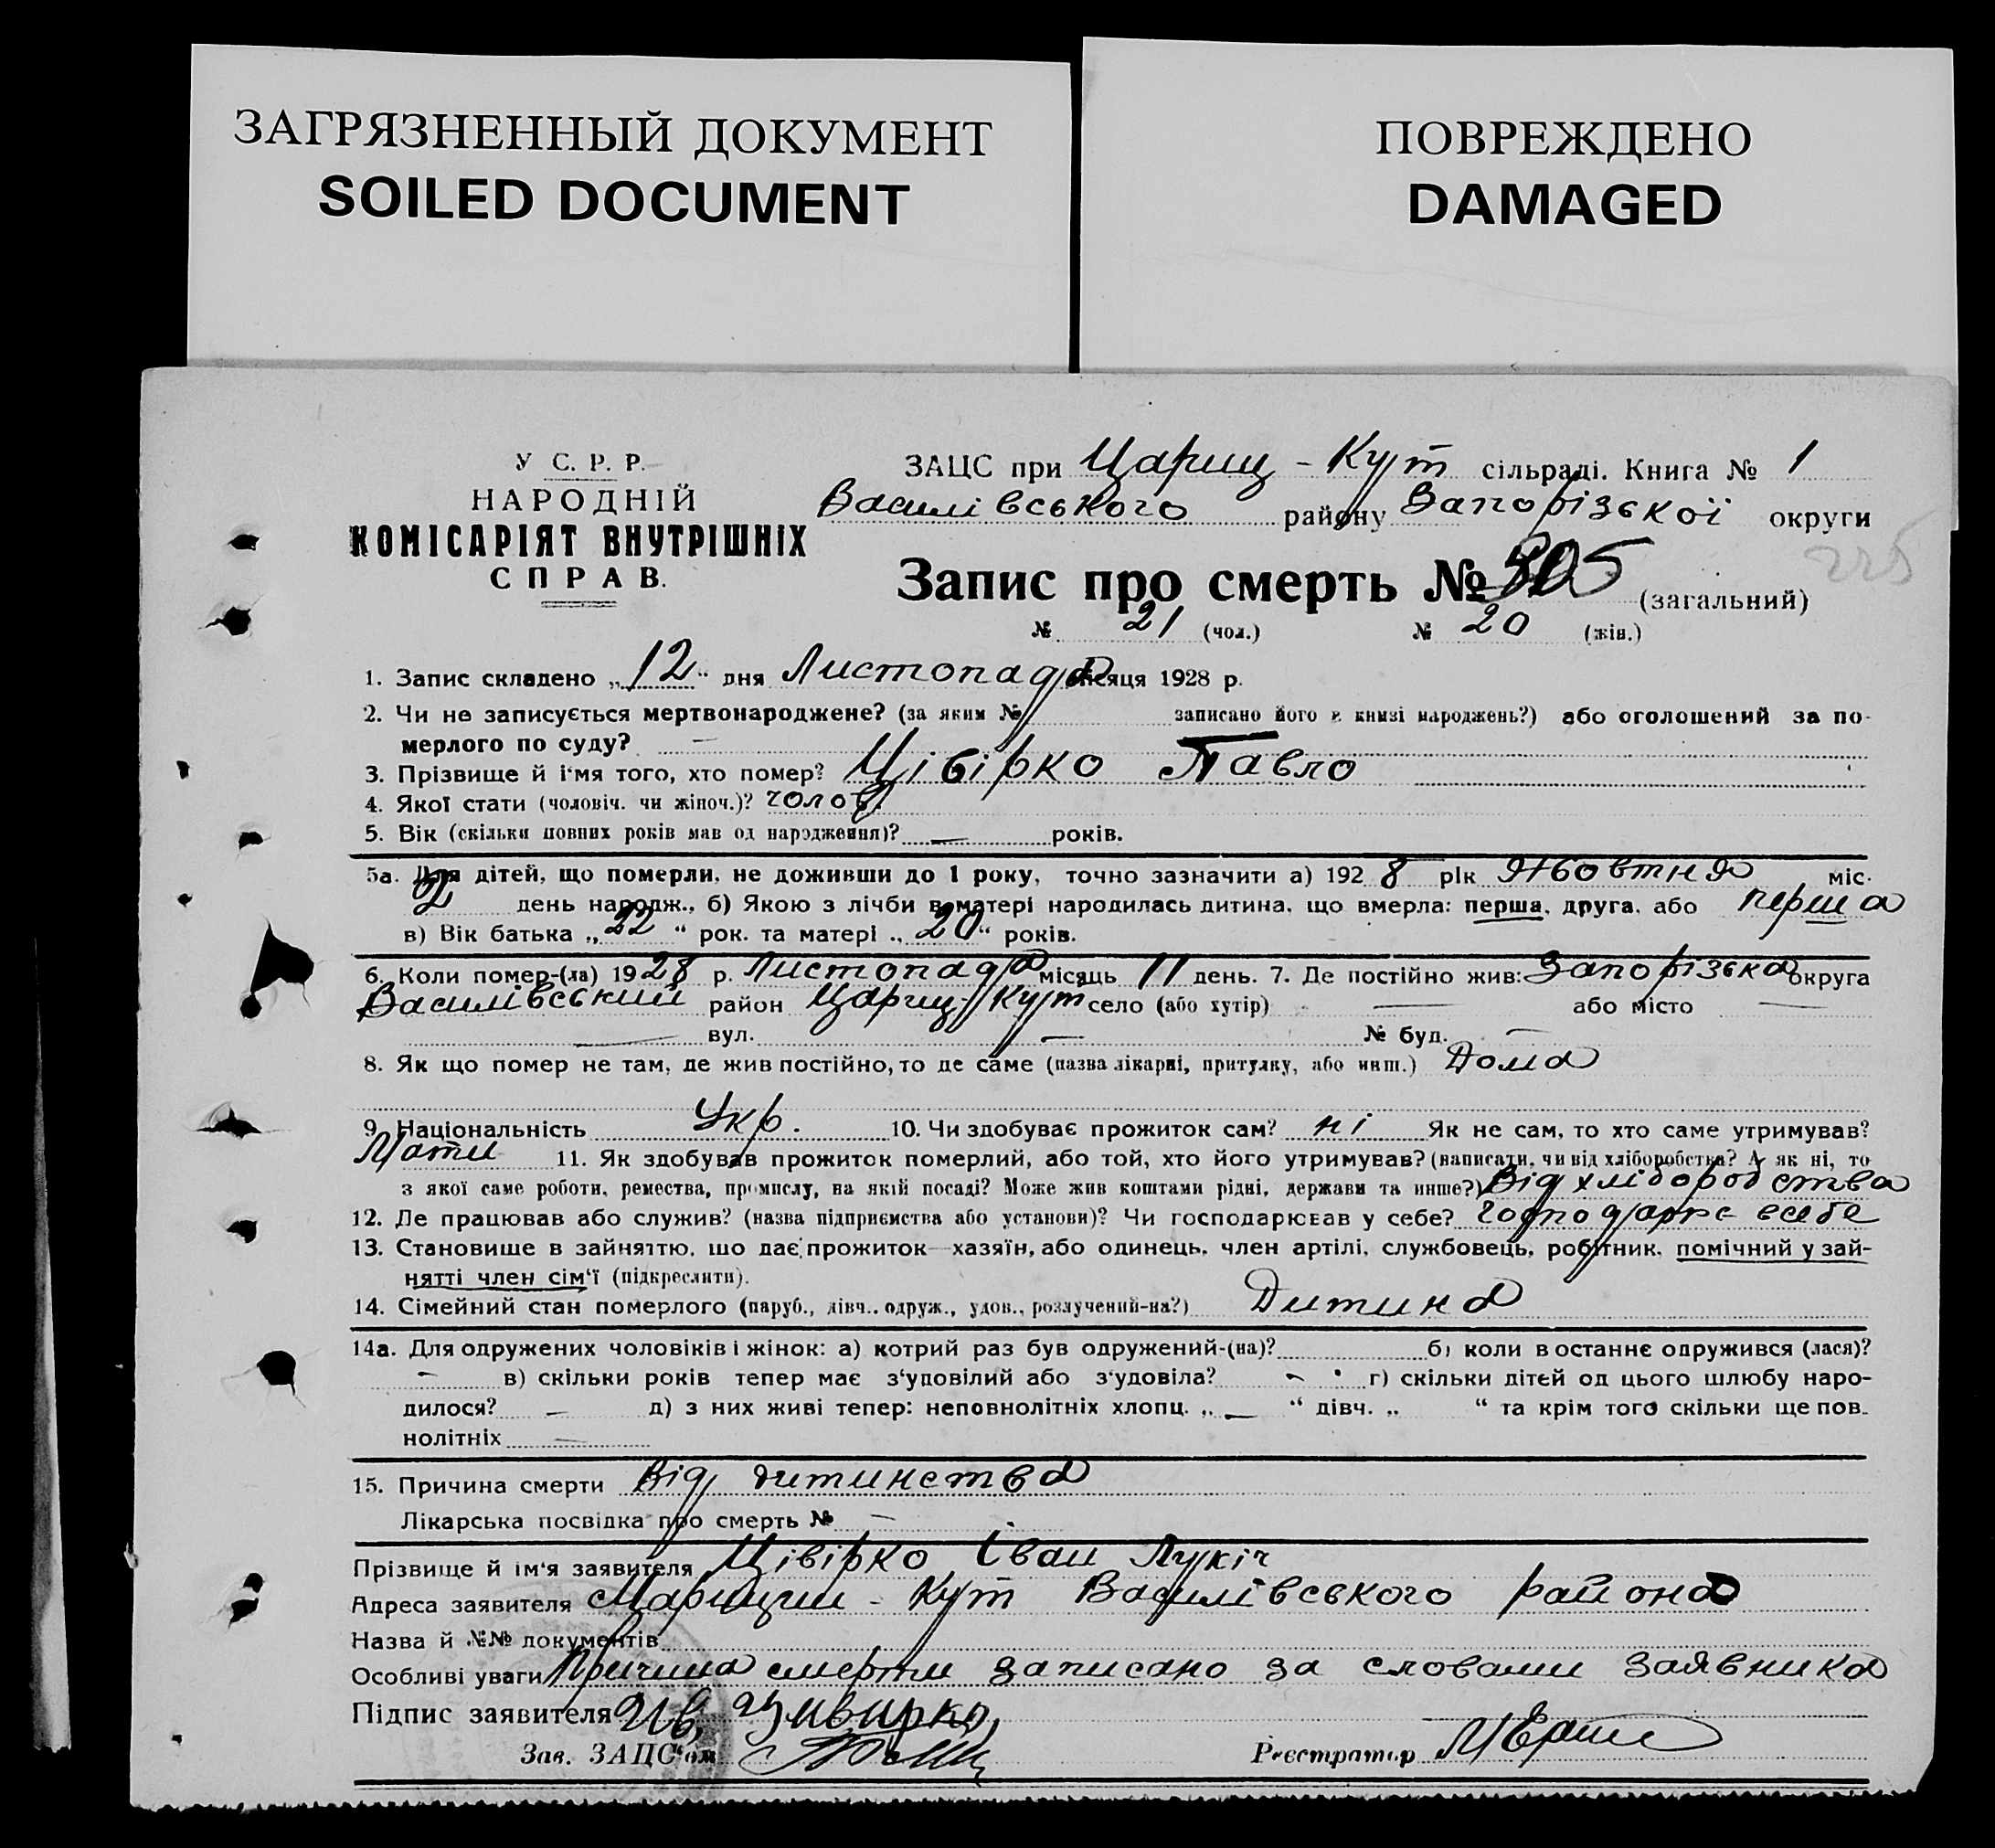 ЗАГРЯЗНЕННЫЙ ДОКУМЕНТ
SOILED DOCUMENT
ПОВРЕЖДЕНО
DAMAGED
У С. Р. Р.
НАРОДНІЙ
КОМІСАРІЯТ ВНУТРІШНІХ
СПРАВ.
ЗАЦС при Цариц - Кут сільраді. Книга № 1
Василівського району Запорізської округи
225
Запис про смерть № 505 (загальний)
№ 21 (чол.) № 20 (жін.)
1. Запис складено „12“ дня Листопада місяця 1928 р.
2. Чи не записується мертвонароджене? (за яким № записано його в книзі народжень?) або оголошений за по-
мерлого по суду? —
3. Прізвище й і'мя того, хто помер? Цівірко Павло
4. Якої стати (чоловіч. чи жіноч.)? чолов.
5. Вік (скільки повних років мав од народження)? — років.
5а. Для дітей, що померли, не доживши до 1 року, точно зазначити а) 1928 рік Жовтня міс.
2 день народж., б) Якою з лічби в матері народилась дитина, що вмерла: перша, друга, або перша
в) Вік батька „22“ рок. та матері „20“ років.
6. Коли помер-(ла) 1928 р. Листопада місяць 11 день. 7. Де постійно жив: Запорізска округа
Василівський район Цариц-Кут село (або хутір) — або місто —
— вул. — № буд. —
8. Як що помер не там, де жив постійно, то де саме (назва лікарні, притулку, або инш.) Дома
9. Національність Укр. 10. Чи здобуває прожиток сам? ні Як не сам, то хто саме утримував?
Мати 11. Як здобував прожиток померлий, або той, хто його утримував? (написати, чи від хліборобства? А як ні, то
з якої саме роботи, ремества, промислу, на якій посаді? Може жив коштами рідні, держави та инше?) Від хлібородства
12. Де працював або служив? (назва підприємства або установи)? Чи господарював у себе? Господарює всебе
13. Становище в зайнятю, що дає прожиток—хазяїн, або одинець, член артілі, службовець, робітник, помічний у зай-
нятті член сім'ї (підкреслити).
14. Сімейний стан померлого (паруб., дівч., одруж., удов., розлучений-на?) Дитина
14а. Для одружених чоловіків і жінок: а) котрий раз був одружений-(на)? б) коли в останнє одружився (лася)?
— в) скільки років тепер має з'удовілий або з'удовіла? — г) скільки дітей од цього шлюбу наро-
дилося? — д) з них живі тепер: неповнолітніх хлопц. „ — “ дівч. „ “ та крім того скільки ще пов-
нолітніх —
15. Причина смерти Від дитинства
Лікарська посвідка про смерть № —
Прізвище й ім'я заявителя Цівірко Іван Лукіч
Адреса заявителя Царицин - Кут Василівського района
Назва й №№ документів
Особливі уваги Причина смерти записано за словами заявника
Підпис заявителя Ив Цивирко
Зав. ЗАЦС'ом
Реєстратор